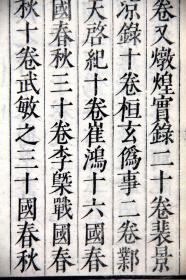 卷又燉煌實錄二十卷裴景
涼錄十卷桓玄僞事二卷鄴
天啓紀十卷崔鴻十六國春
國春秋三十卷李槩戰國春
秋十卷武敏之三十國春秋